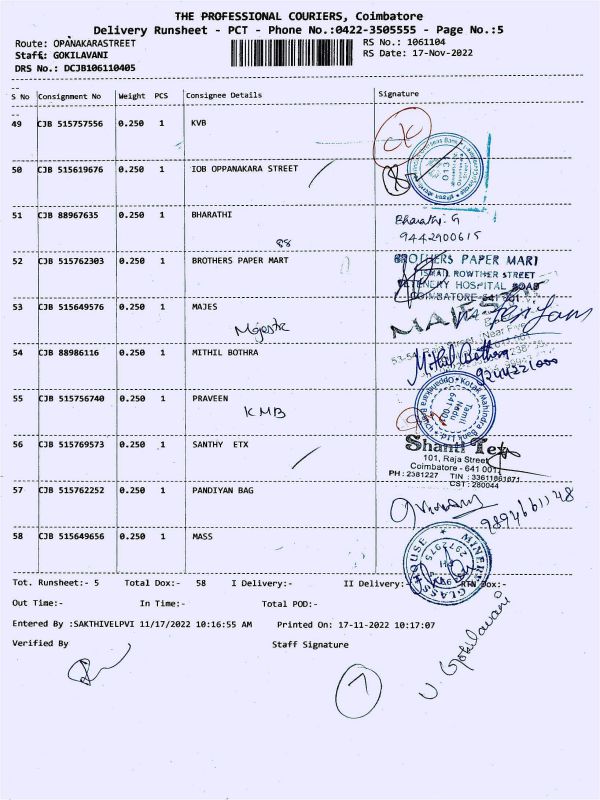 THE PROFESSIONAL COURIERS, Coimbatore
Delivery Runsheet - PCT - Phone No.:0422-3505555 - Page No.:5
Route: OPANAKARASTREET RS No.: 1061104
Staff: GOKILAVANI RS Date: 17-Nov-2022
DRS No.: DCJB106110405
S No Consignment No Weight PCS Consignee Details Signature
49 CJB 515757556 0.250 1 KVB
50 CJB 515619676 0.250 1 IOB OPPANAKARA STREET
51 CJB 88967635 0.250 1 BHARATHI Bharathi. G
88 9442900615
52 CJB 515762303 0.250 1 BROTHERS PAPER MART BROTHERS PAPER MART
ISMAIL ROWTHER STREET
VETENERY HOSPITAL ROAD
COIMBATORE-641 001
53 CJB 515649576 0.250 1 MAJES
Majestic
54 CJB 88986116 0.250 1 MITHIL BOTHRA Mithil Bothra
9244221000
55 CJB 515756740 0.250 1 PRAVEEN
KMB
Kotak Mahindra Bank Ltd.
Tamil Nadu
641 001
56 CJB 515769573 0.250 1 SANTHY ETX Shanti Tex
101, Raja Street
Coimbatore - 641 001
PH : 2381227 TIN : 33611861871
CST : 280044
57 CJB 515762252 0.250 1 PANDIYAN BAG
9894661148
58 CJB 515649656 0.250 1 MASS
GLASS HOUSE
2972975
Tot. Runsheet:- 5 Total Dox:- 58 I Delivery:- II Delivery: RTN Dox:-
Out Time:- In Time:- Total POD:-
Entered By :SAKTHIVELPVI 11/17/2022 10:16:55 AM Printed On: 17-11-2022 10:17:07
Verified By Staff Signature
U. Gokilavani